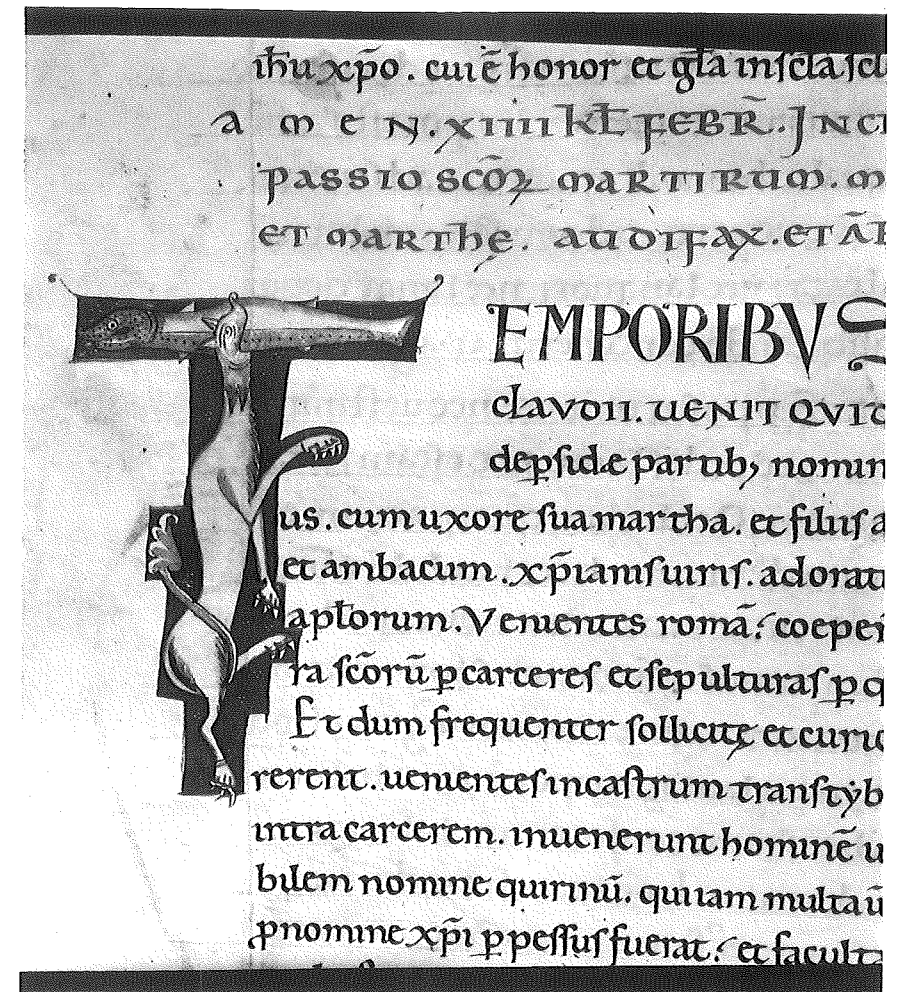 ih̄u xp̄o. cui ē honor et gl̄a in sc̄la sc̄l
A M E N. XIIII KL̄ FEBR̄. INCI
PASSIO SC̄OꝜ MARTIRUM. M
ET MARTHE. AUDIFAX. ET ĀB
TEMPORIBVS
CLAVDII. UENIT QVID
de ꝑside partib; nomin
us. cum uxore sua martha. et filiis a
et ambacum. xp̄iani s uiris. adorati
apl̄orum. Venientes romā. coeper
ra sc̄orū ꝑ carceres et sepulturas ꝑ q
Et dum frequenter sollicitę et curio
rerent. uenientes in castrum transtẏb
intra carcerem. inuenerunt hominē u
bilem nomine quirinū. qui iam multa ū
ꝓ nomine xp̄i ꝑpessus fuerat. et faculta